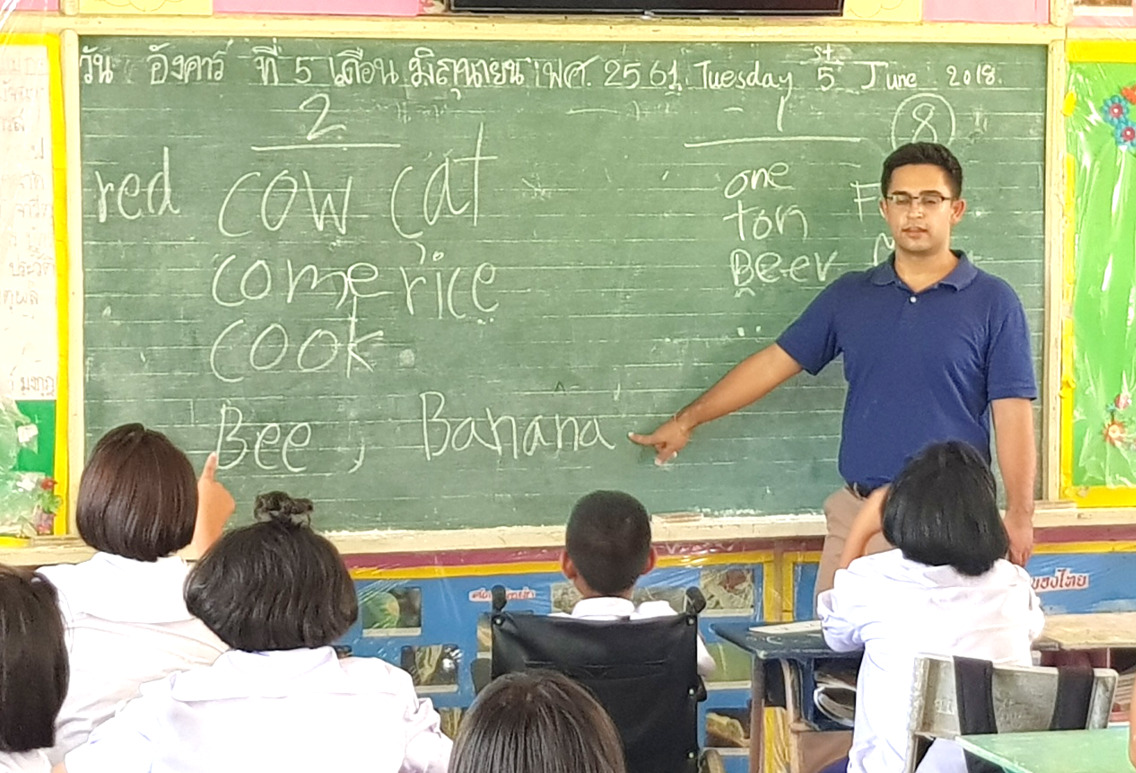 วัน อังคาร์ ที่ 5 เดือน มิถุนายน พศ. 2561 Tuesday 5 st June 2018.
2
red cow cat
come, rice
cook
Bee, Banana
1 8
one F
ton
Beer
ของไทย